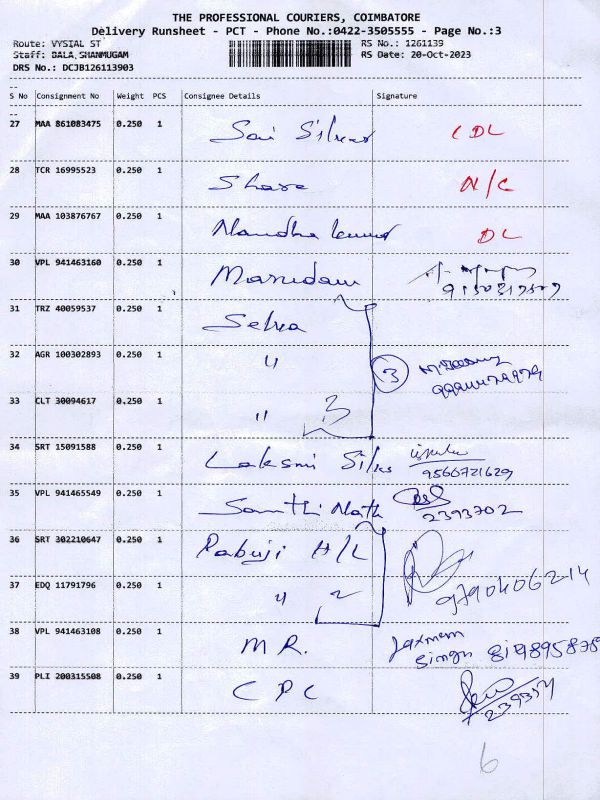 THE PROFESSIONAL COURIERS, COIMBATORE
Delivery Runsheet - PCT - Phone No.:0422-3505555 - Page No.:3
Route: VYSIAL ST RS No.: 1261139
Staff: BALA, SHANMUGAM RS Date: 20-Oct-2023
DRS No.: DCJB126113903
--
S No Consignment No Weight PCS Consignee Details Signature
--
27 MAA 861083475 0.250 1 Sai Silver CDL
28 TCR 16995523 0.250 1 N/C
29 MAA 103876767 0.250 1 Nandha Kumar DL
30 VPL 941463160 0.250 1 Marudam
31 TRZ 40059537 0.250 1 Selva
32 AGR 100302893 0.250 1 " 3
33 CLT 30094617 0.250 1 " 3
34 SRT 15091588 0.250 1 Laksmi Silks 9566721629
35 VPL 941465549 0.250 1 Santhi Nath 2393702
36 SRT 302210647 0.250 1 Rabuji H/L
37 EDQ 11791796 0.250 1 " 2 9790406214
38 VPL 941463108 0.250 1 M R. Laxman Singh
39 PLI 200315508 0.250 1 C P C
6